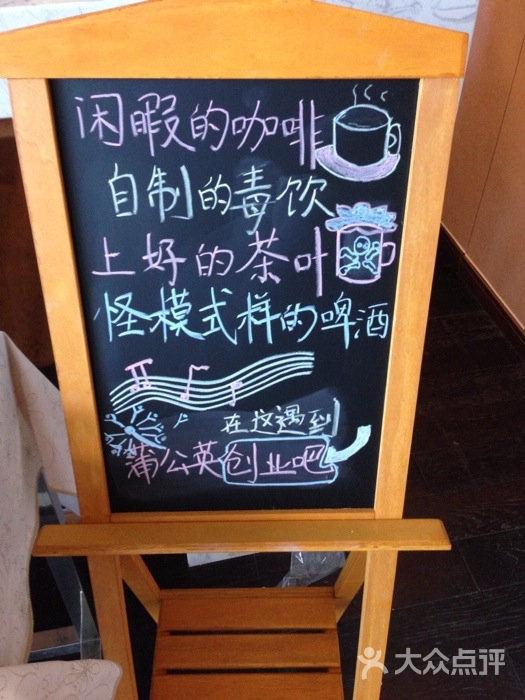 闲暇的咖啡
自制的毒饮
上好的茶叶
怪模式样的啤酒
在这遇到
蒲公英创业吧
大众点评